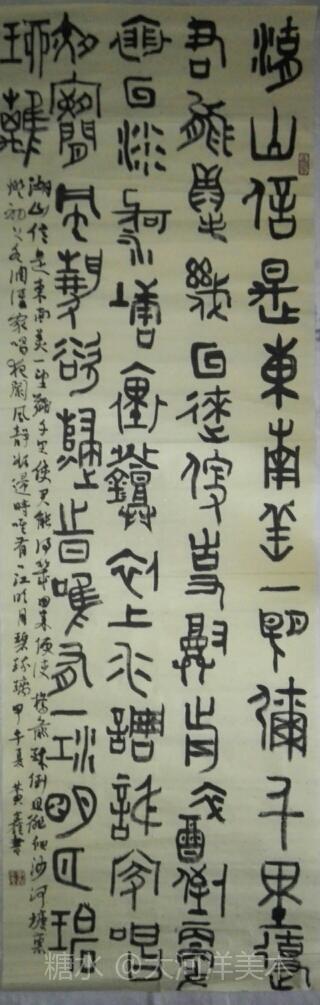 湖山信是東南美一望彌千里使
君能得幾回來便使尊前醉倒更
裵回沙河塘裏鐙初上水調誰家唱
夜闌風靜欲歸時唯有一江明月碧
琉璃
湖山信是東南美一望彌千里使君能得幾回來便使樽前醉倒更徘徊沙河塘裏
燈初上水調誰家唱夜闌風靜欲歸時唯有一江明月碧琉璃 甲午夏 黃 書
糖水 @大河洋美本